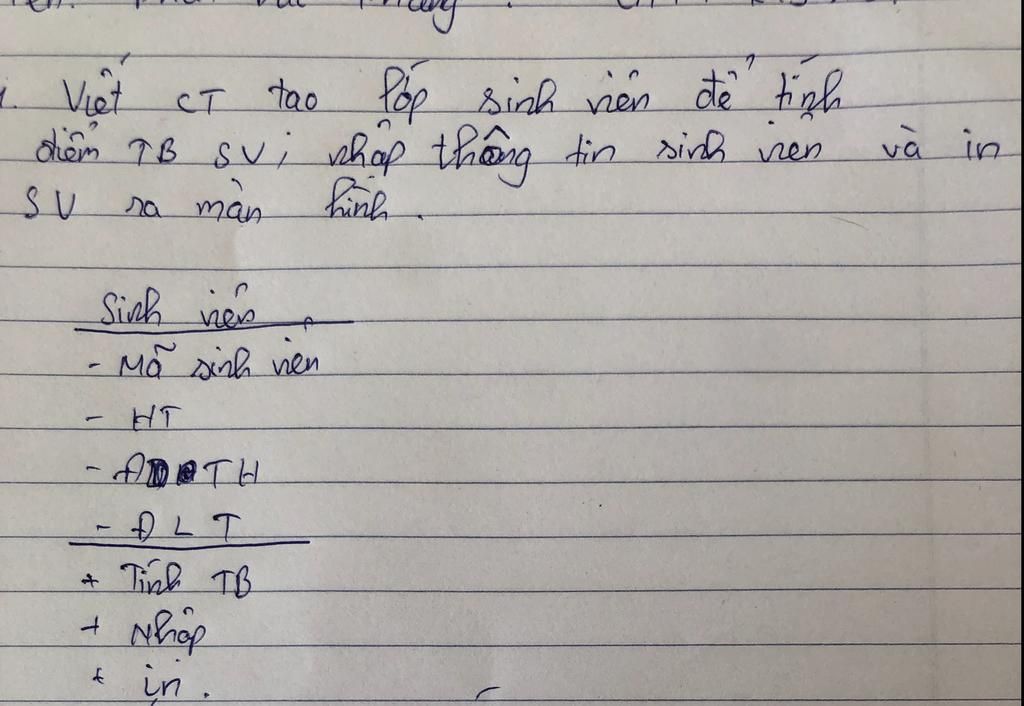 1. Viết CT tạo lớp sinh viên để tính
điểm TB SV; nhập thông tin sinh viên và in
SV ra màn hình.
Sinh viên
- Mã sinh viên
- HT
- Đ TH
- Đ L T
+ Tính TB
+ Nhập
+ in.